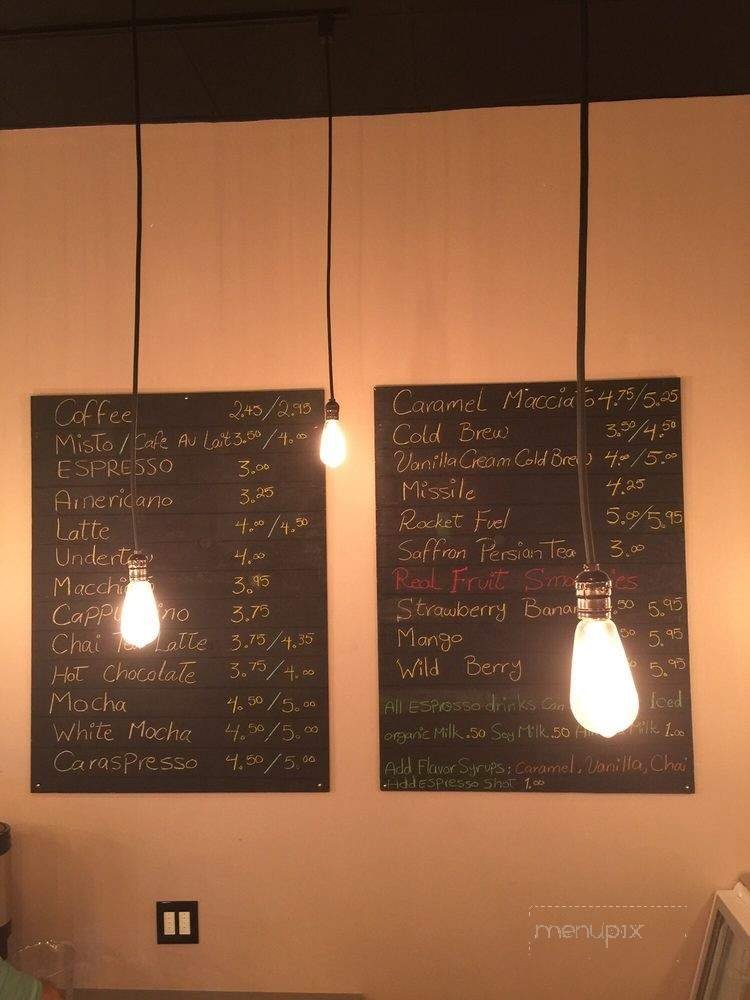 Coffee 2.45/2.95
Misto/Cafe Au Lait 3.50/4.00
ESPRESSO 3.00
Americano 3.25
Latte 4.00/4.50
4.00
3.95
3.75
Chai Latte 3.75/4.35
Hot Chocolate 3.75/4.00
Mocha 4.50/5.00
White Mocha 4.50/5.00
Caraspresso 4.50/5.00
Caramel 4.75/5.25
Cold Brew 3.50/4.50
Vanilla Cream Cold Brew 4.00/5.00
Missile 4.25
Rocket Fuel 5.00/5.95
Saffron Persian Tea 3.00
Real Fruit
Strawberry 5.95
Mango 5.95
Wild Berry 5.95
All Espresso drinks Can Iced
organic Milk .50 Soy Milk .50 Milk 1.00
Add Flavor Syrups: Caramel, Vanilla, Chai
Add Espresso Shot 1.00
menupix